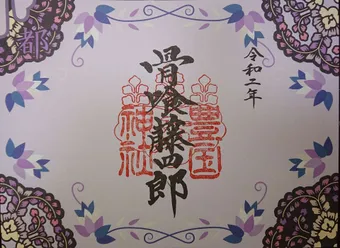 都
令和二年
骨喰藤四郎
豊国
神社